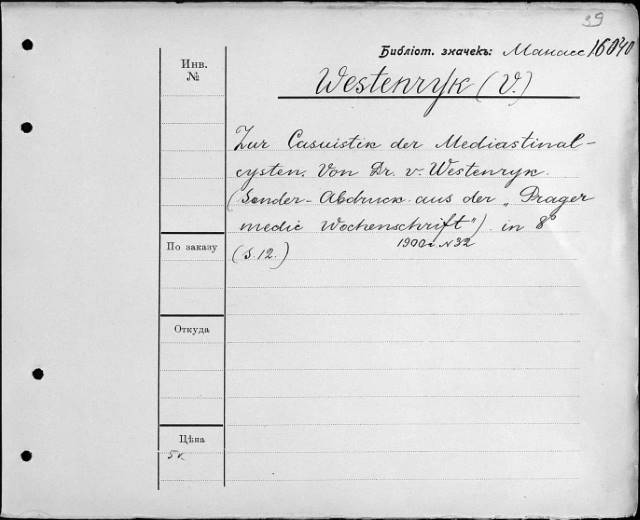 39
Библіот. значекъ: Манасс 16040
Инв.
№
Westenryk (V.)
Zur Casuistik der Mediastinal-
cysten. Von Dr. v. Westenryk.
(Sonder-Abdruck aus der „Prager
medic Wochenschrift“) in 8°
1900 г. N 32
По заказу
(S. 12.)
Откуда
Цѣна
5 к.